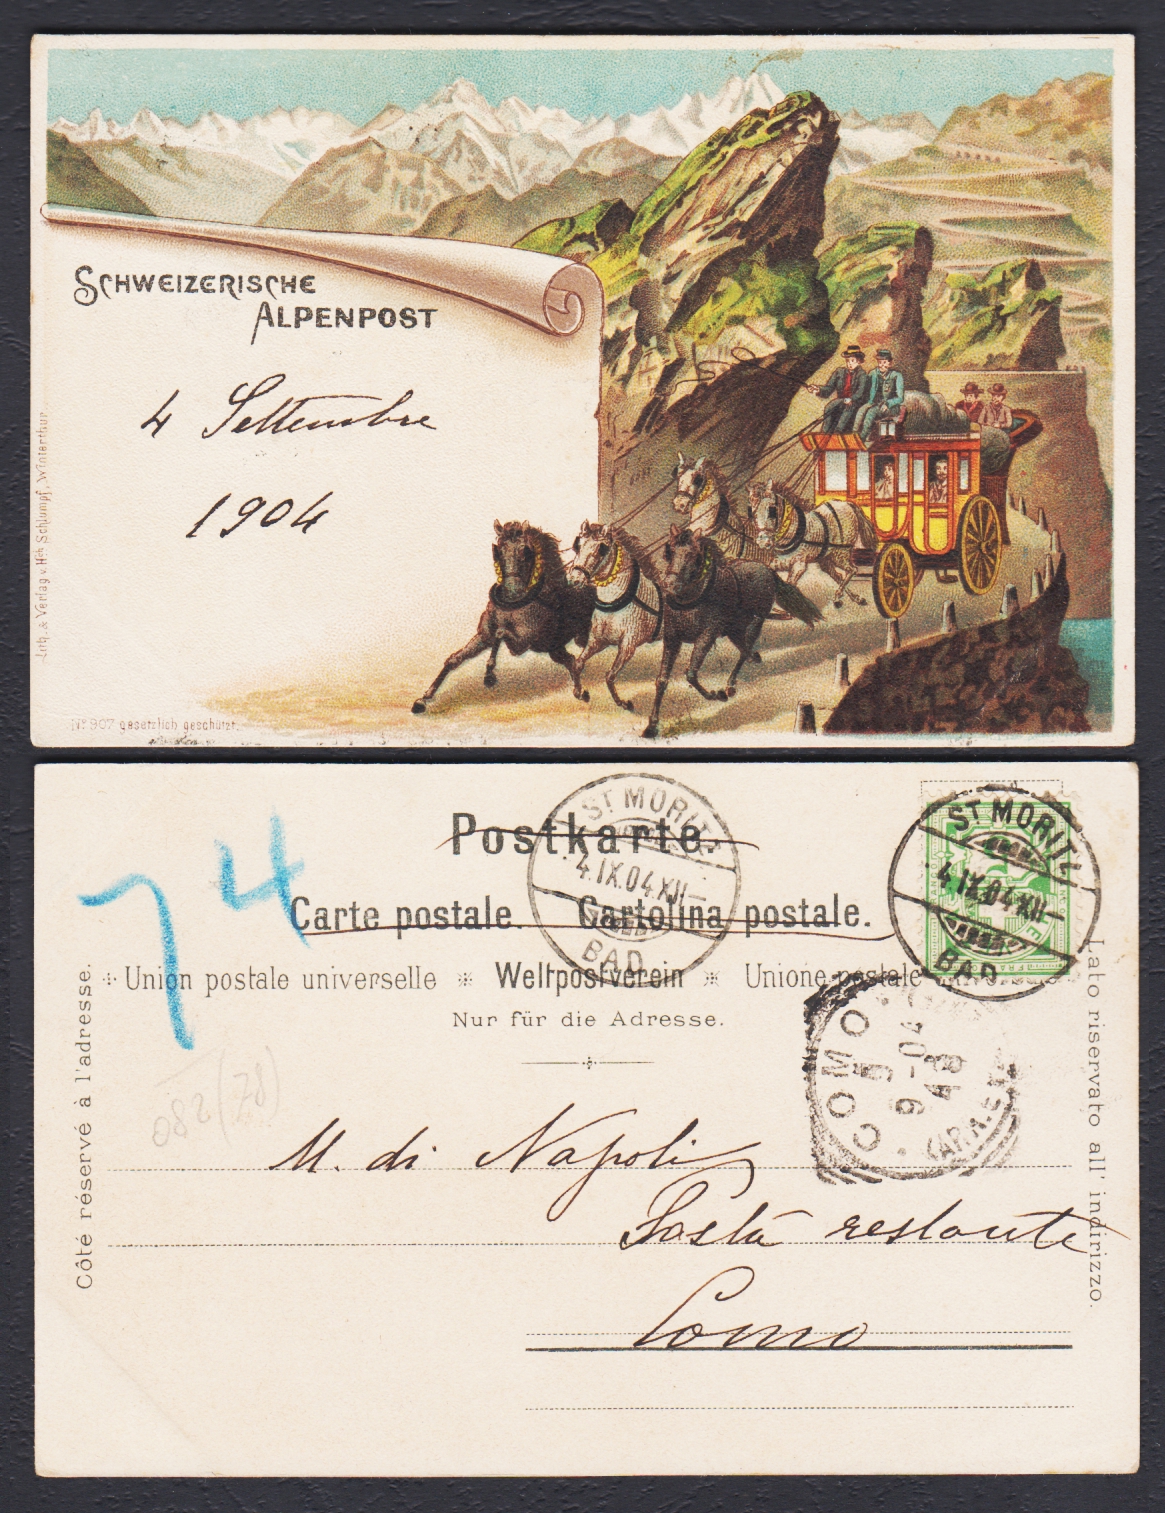 SCHWEIZERISCHE
ALPENPOST
4 Settembre
1904
Lith. & Verlag v. Hch Schlumpf, Winterthur.
No 907 gesetzlich geschützt.
74
Postkarte.
Carte postale. Cartolina postale.
Union postale universelle ※ Weltpostverein ※ Unione postale
Nur für die Adresse.
Côté réservé à l'adresse.
Lato riservato all' indirizzo.
ST MORITZ
4.IX.04.XII-
BAD
ST MORITZ
4.IX.04.XII-
BAD
COMO
9-04
M. di Napoli
Posta restante
Como